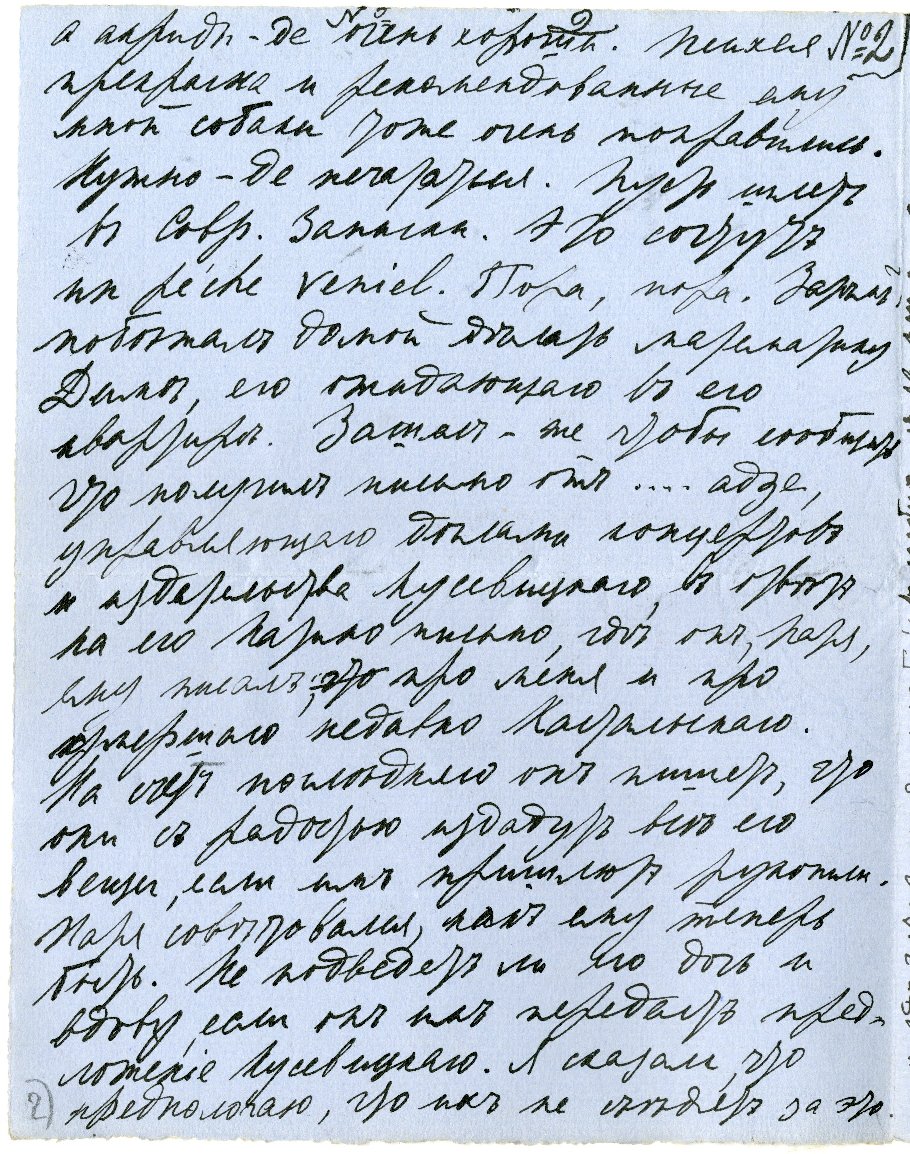 а акриды-де очень хороши. Психея № 2
прекрасна и рекомендованные ему
мной собаки тоже очень понравились.
Нужно-де печататься. Пусть шлетъ
въ Совр. Записки. Это сочтутъ
un péché veniel. Пора, пора. Затѣмъ
побѣжалъ домой дѣлать
Димы, его ожидающаго въ его
квартирѣ. Зашелъ-же чтобы сообщить
что получилъ письмо отъ .... адзе,
управляющаго дѣлами концертовъ
и издательства Кусевицкаго, въ отвѣтъ
на его письмо, гдѣ онъ,
ему писалъ про меня и про
умершаго недавно Кастальскаго.
На счетъ послѣдняго онъ пишетъ, что
они съ радостью издадутъ всѣ его
вещи, если имъ пришлютъ рукописи.
совѣтовался, какъ ему теперь
быть. Не подведетъ ли его дочь и
вдову, если онъ имъ передастъ пред-
ложеніе Кусевицкаго. Я сказали, что
предполагаю, что ихъ не съѣдятъ за это.
2)